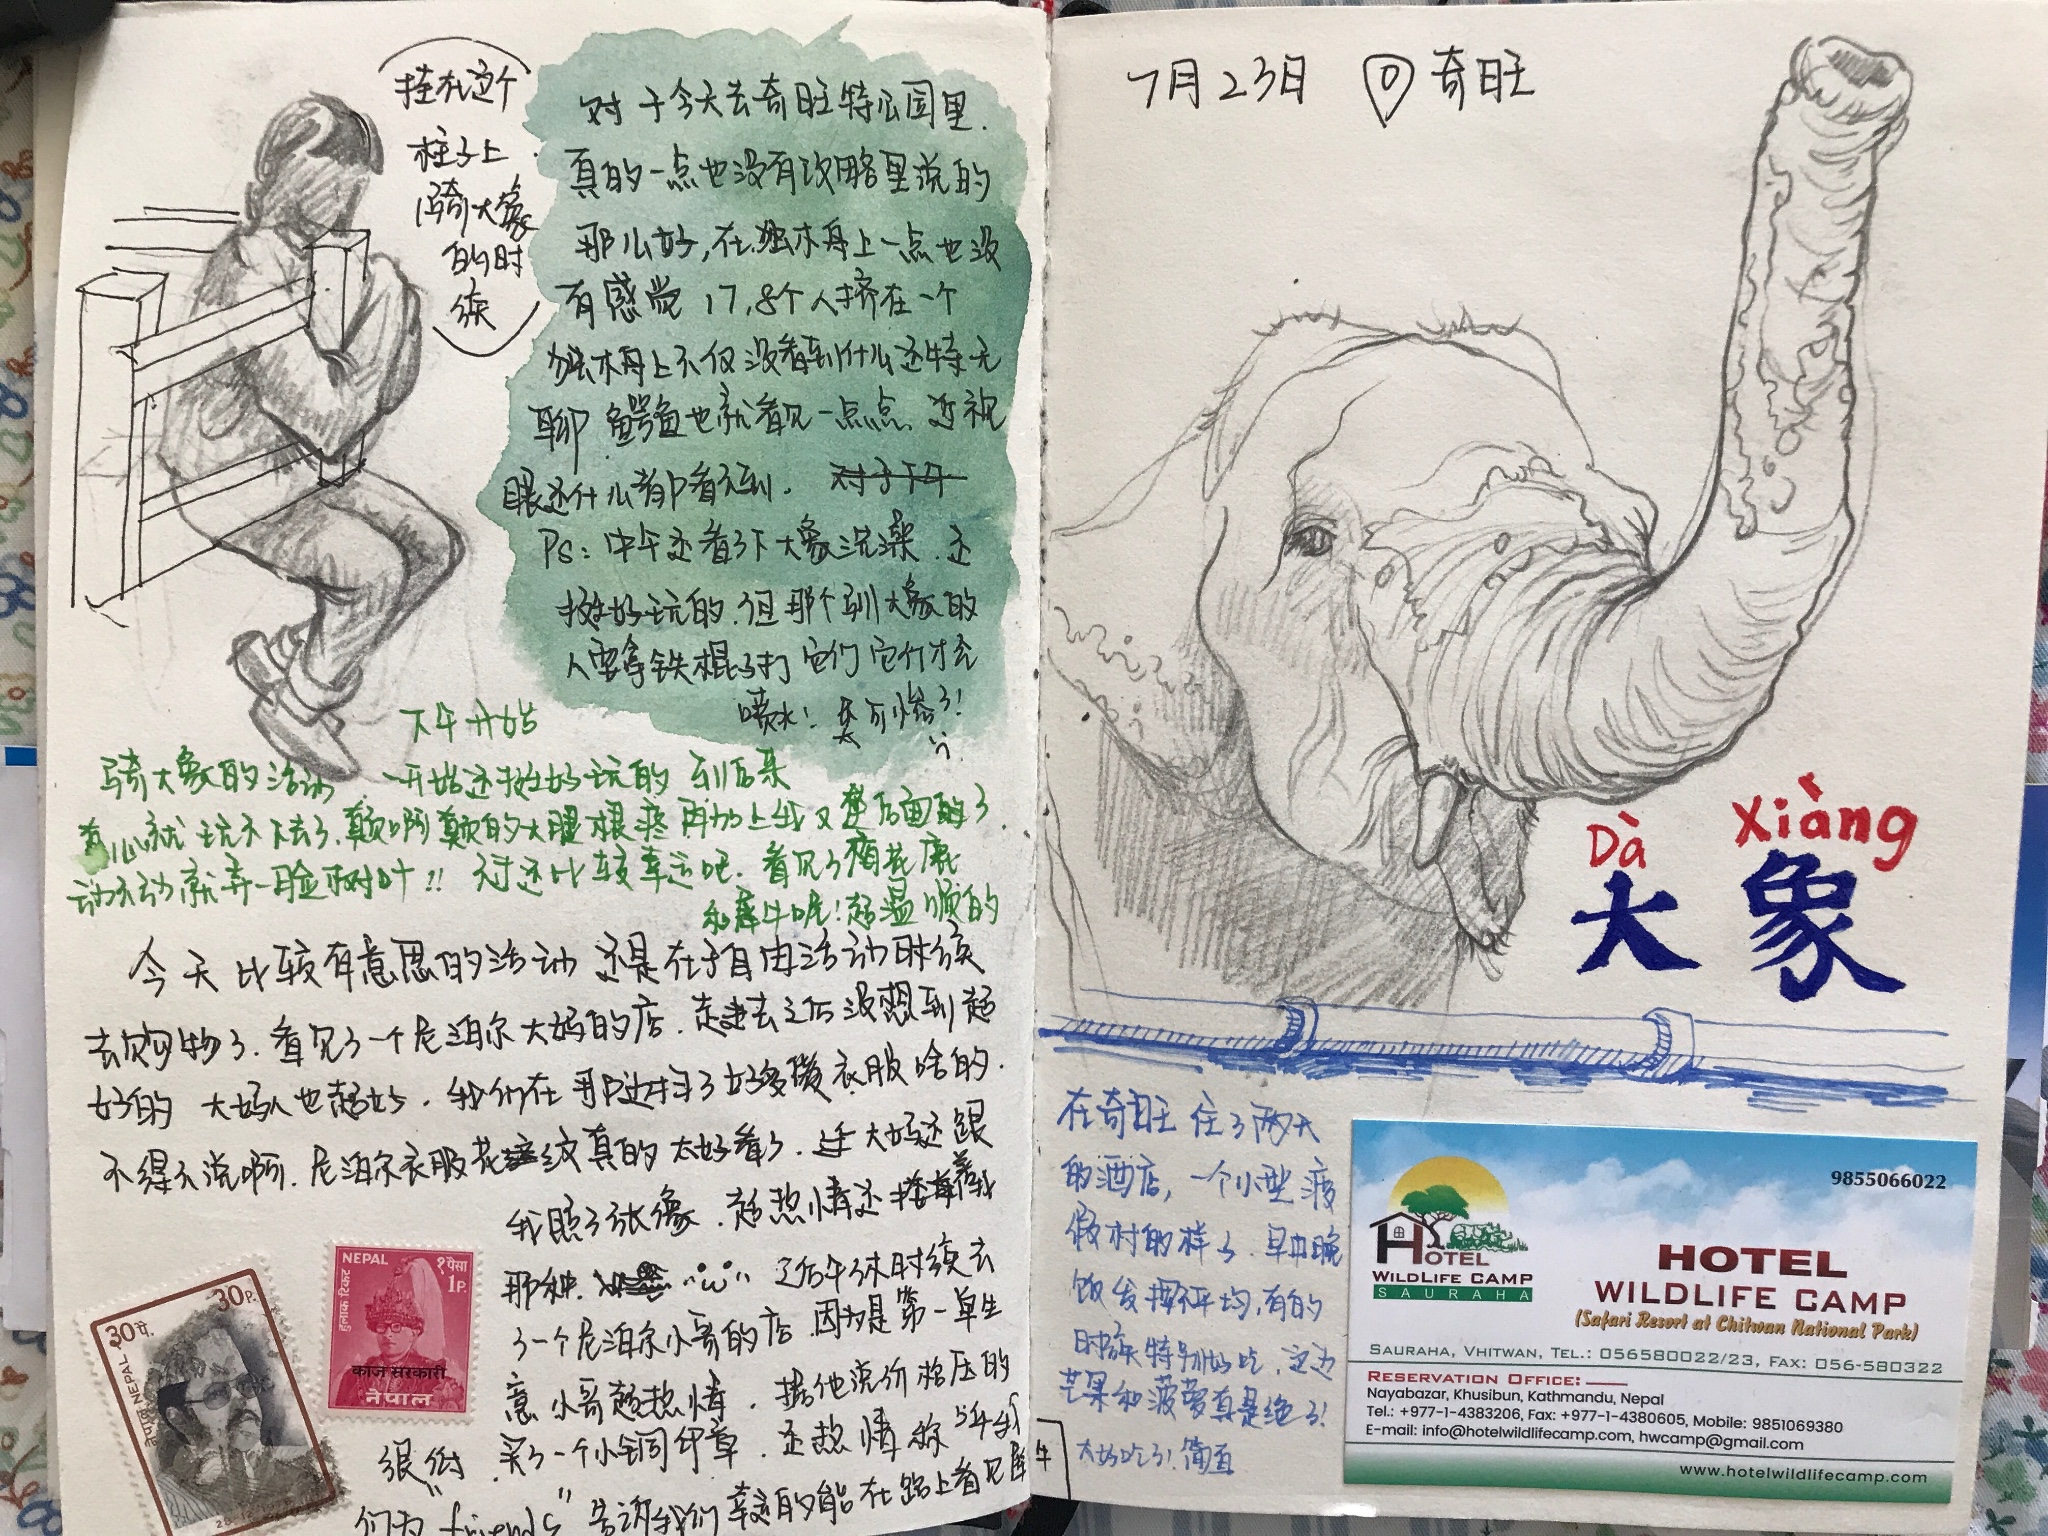 挂在这个
柱子上
骑大象
的时
候
对于今天去奇旺特公园里.
真的一点也没有攻略里说的
那么好,在独木舟上一点也没
有感觉 17,8个人挤在一个
独木舟上不仅没看到什么还特无
聊 鳄鱼也就看见一点点 近视
眼还什么都看不到. 对于下午
Ps: 中午还看了下大象洗澡 还
挺好玩的.但那个驯大象的
人要拿铁棍子打它们它们才会
喷水! 太可怜了!
下午开始
骑大象的活动 一开始还挺好玩的 到后来
就玩不下去了,颠啊颠的大腿根疼 再加上我又坐后面的了.
动不动就弄一脸树叶!! 不过还比较幸运吧. 看见了梅花鹿
和犀牛呢!超温顺的
今天比较有意思的活动 还是在于自由活动时候
去购物了. 看见了一个尼泊尔大妈的店. 走进去之后没想到超
好的 大妈人也超好. 我们在那边扫了好多发衣服啥的.
不得不说啊. 尼泊尔衣服花纹真的太好看了. 连大妈还跟
我照了张像. 超热情还搂着我
那种. "ω" 之后午休时候去
了一个尼泊尔小哥的店 因为是第一单生
意 小哥超热情. 据他说价格压的
很低 买了一个小铜印章. 还热情称
们为"friends" 告诉我们 真的能在路上看见犀牛
30पै. 30P.
NEPAL नेपाल
NEPAL
१ पैसा
1P.
हुलाक टिकट
काज सरकारी
नेपाल
7月23日 奇旺
Dà Xiàng
大象
在奇旺 住了两天
的酒店, 一个小型度
假村的样子. 早中晚
饭发挥平均,有的
时候特别好吃. 这边
芒果和菠萝真是绝了!
太好吃了!简直
9855066022
HOTEL
WILDLIFE CAMP
SAURAHA
HOTEL
WILDLIFE CAMP
(Safari Resort at Chitwan National Park)
SAURAHA, VHITWAN, TEL.: 056580022/23, FAX: 056-580322
RESERVATION OFFICE:
Nayabazar, Khusibun, Kathmandu, Nepal
Tel.: +977-1-4383206, Fax: +977-1-4380605, Mobile: 9851069380
E-mail: info@hotelwildlifecamp.com, hwcamp@gmail.com
www.hotelwildlifecamp.com